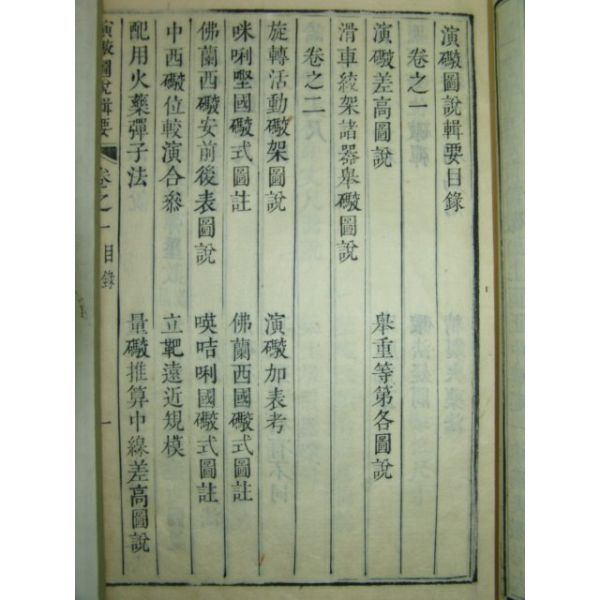 演礮圖說輯要目錄
卷之一
演礮差高圖說 舉重等第各圖說
滑車絞架諸器舉礮圖說
卷之二
旋轉活動礮架圖說 演礮加表考
咪唎㗴國礮式圖註 佛蘭西國礮式圖註
佛蘭西礮安前後表圖說 𠸄咭唎國礮式圖註
中西礮位較演合參 立靶遠近規模
配用火藥彈子法 量礮推算中線差高圖說
演礮圖說輯要 卷之一 目錄 一